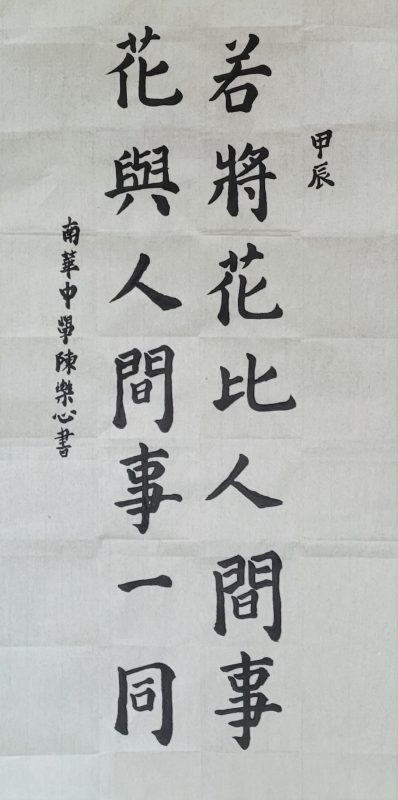 甲辰
若將花比人間事
花與人間事一同
南華中學陳樂心書